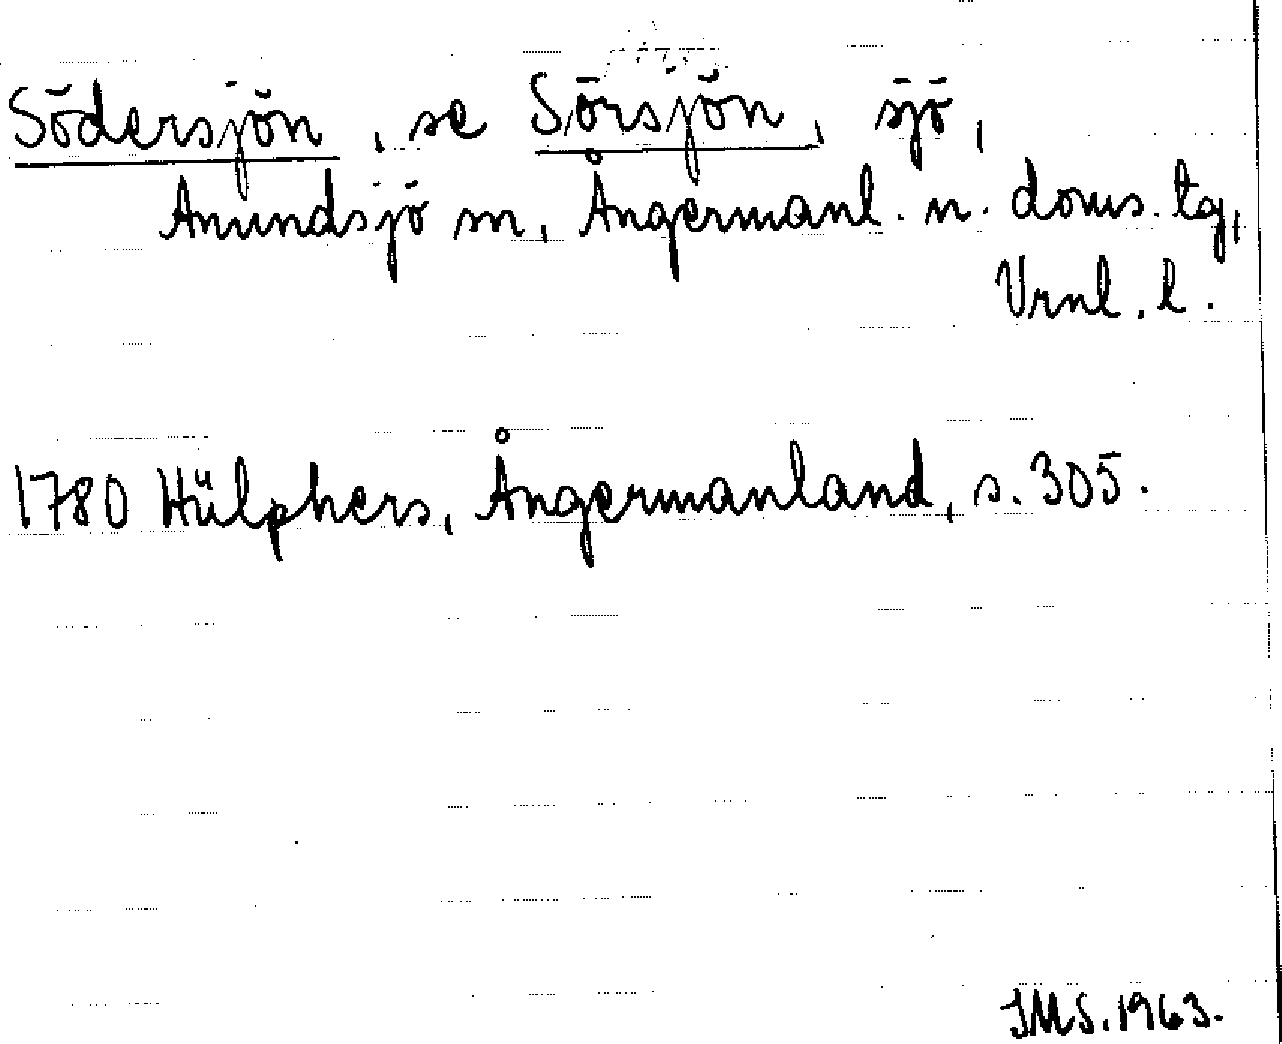 Södersjön, se Sörsjön, sjö,
Anundsjö sn, Ångermanl. n. doms. tg,
Vrnl. l.
1780 Hülphers, Ångermanland, s. 305.
JMS. 1963.